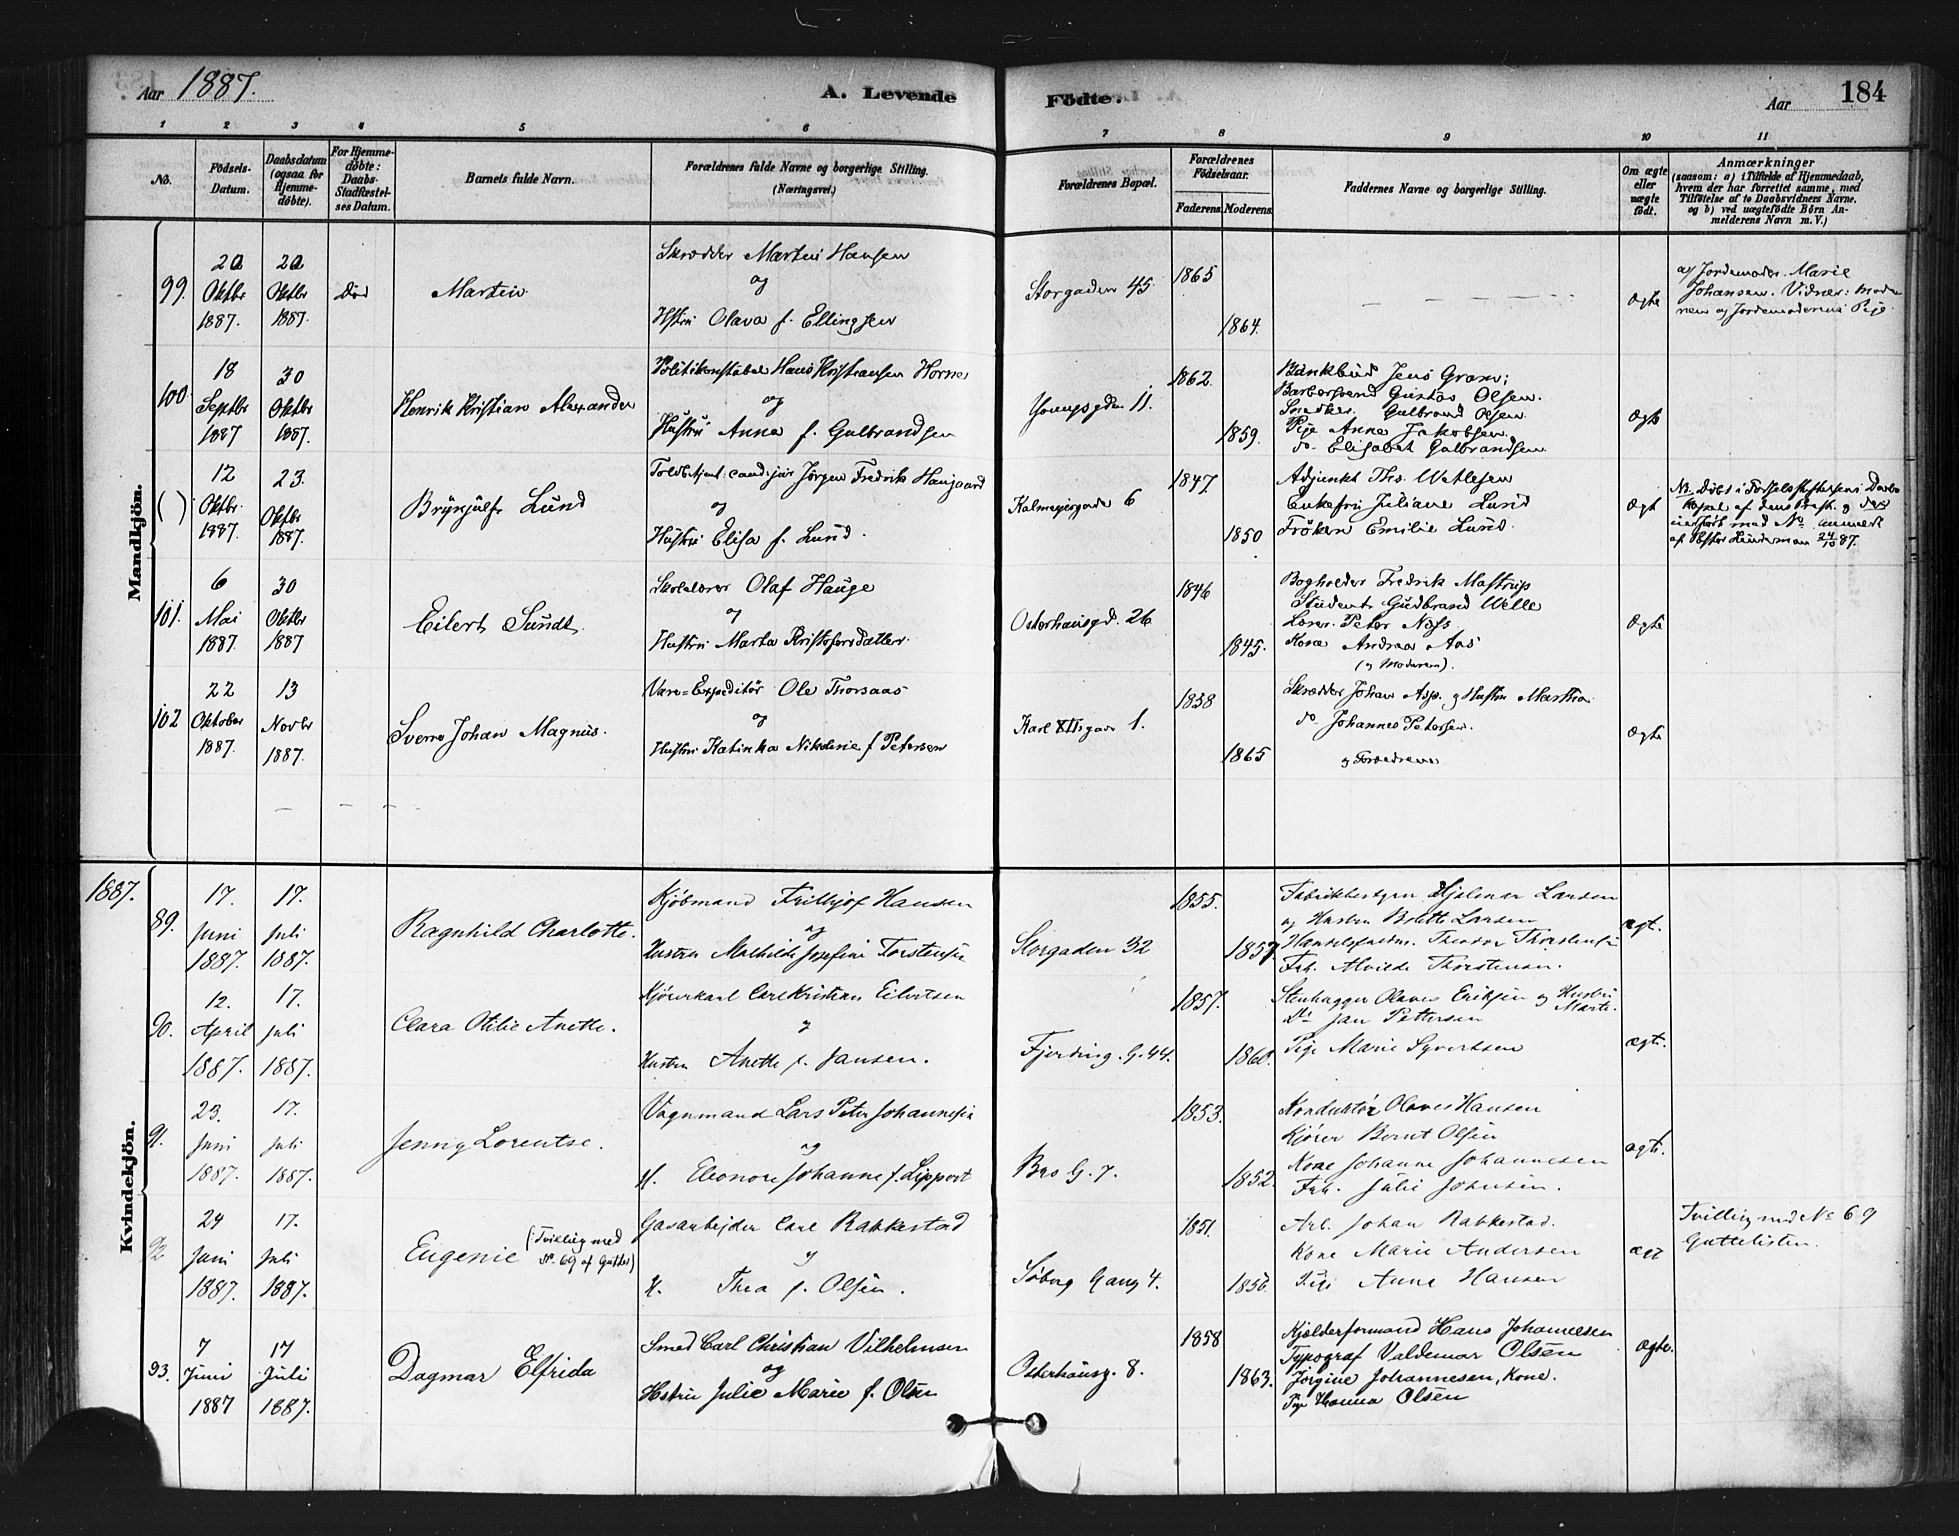 Aar 1887.
A. Levende
Födte.
Aar
184
1 2 3 4 5 6 7 8 9 10 11
No.
Födsels-
Datum.
Daabsdatum
(ogsaa for
Hjemme-
döbte).
For Hjemme-
döbte:
Daabs-
Stadfæstel-
ses Datum.
Barnets fulde Navn.
Forældrenes fulde Navne og borgerlige Stilling.
(Næringsvei.)
Forældrenes Bopæl.
Forældrenes
Födselsaar.
Faderens.
Moderens.
Faddernes Navne og borgerlige Stilling.
Om ægte
eller
uægte
födt.
Anmærkninger
(saasom: a) i Tilfælde af Hjemmedaab,
hvem der har forrettet samme, med
Tilföielse af to Daabsvidners Navne.
og b) ved uægtefödte Börn An-
melderens Navn m. V.)
Mandkjön.
99.
20
Oktbr
1887.
20
Oktbr
1887.
Död
Martin
Skrædder Martin Hansen
og
Hstru Olava f. Ellingsen
Storgaden 45
1865
1864.
ægte
af Jordemoder Marie
Johansen. Vidner: Mode-
ren og Jordemoderens Pige.
100
18
Septbr
1887
30
Oktbr
1887.
Henrik Kristian Alexander
Politikonstabel Hans Kristiansen Horne
og
Hustru Anna f. Gulbrandsen
Youngsgden 11.
1862.
1859.
Bankbud Jens Gram;
Barbersvend Gustav Olsen.
Snedker Gulbrand Olsen
Pige Anne Jakobsen
do. Elisabet Gulbrandsen
ægte
( )
12
Oktbr.
1887.
23.
Oktbr
1887.
Brynjulf Lund
Toldbetjent cand. jur Jörgen Fredrik Haugaard
og
Hustru Elisa f. Lund.
Kalmeyergade 6
1847.
1850
Adjunkt Ths. Wetlesen
Enkefru Juliane Lund
Fröken Emilie Lund.
ægt
Nb. Döbt i Födselsstiftelsens
101.
6
Mai
1887.
30
Oktbr
1887
Eilert Sundt.
Skolelærer Olaf Hauge
og
Hustru Marta Kristofersdatter.
Osterhausgd. 26
1846
1845.
Bogholder Fredrik Mastrup
Student Gudbrand Welle
Lærer Peter Næss
Kone Andrea Aas
(og Moderen).
ægte
102
22
Oktober
1887.
13
Novbr
1887.
Sverre Johan Magnus.
Vare=Expeditör Ole Thorsaas
og
Hustru Katinka Nikoline f Petersen
Karl XIIsgade 1.
1838
1865
Skrædder Johan Asp. og Hustru Marthia
do. Johannes Petersen.
og Forældrene
ægte
1887.
Kvindekjön.
89.
17.
Juni
1887.
17.
Juli
1887.
Ragnhild Charlotte.
Kjöbmand Frithjof Hansen
og
Hustru Mathilde Josefine Torstensen
Storgaden 32
1855.
1857
Fabrikbestyrer Hjalmar Larsen
og Hustru Bolette Larsen
Theodor Thorstensen
Frk. Alvilde Thorstensen.
ægt.
90.
12.
April
1887.
17.
Juli
1887.
Clara Otilie Anette.
Kjörerkarl Carl Kristian Eilertsen
og
Hustru Anette f. Jansen.
Fjerding. G. 44.
1857.
1860.
Stenhugger Olaves Eriksen og Hustru
Marte.
Do Jan Pettersen
Pige Marie Syvertsen
ægt.
91.
23.
Juni
1887.
17.
Juli
1887.
Jenny Lorentse.
Vognmand Lars Peter Johannesen
og
H. Eleonore Johanne f. Lippert
Bro G. 7.
1853.
1852.
Konduktör Olaves Hansen
Kjörer Bernt Olsen
Kone Johanne Johannesen
Frk. Julie Johnsen.
ægt.
92
24
Juni
1887.
17.
Juli
1887.
Eugenie (Tvilling med
No. 69 af Gutter)
Gasarbejder Carl Rakkestad
og
H. Thea f. Olsen.
Söberg Gang 4.
1851.
1856.
Arb. Johan Rakkestad.
Kone Marie Andersen
Pige Anne Hansen
ægt
Tvilling med No 69
Guttelisten.
93.
7
Juni
1887
17
Juli
1887.
Dagmar Elfrida
Smed Carl Christian Vilhelmsen
og
Hstru Julie Marie f. Olsen
Osterhausg. 8.
1858
1863.
Kjælderformand Hans Johannesen
Typograf Valdemar Olsen
Jörgine Johannesen, Kone.
Pige Hanna Olsen
ægte.